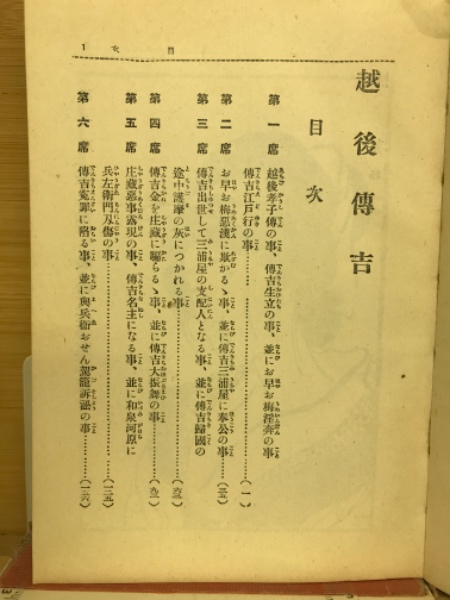 目次 1
越後傳吉
目次
第一席 越後孝子傳の事、傳吉生立の事、並にお早お梅淫奔の事
傳吉江戸行の事……(一)
第二席 お早お梅惡漢に欺かるゝ事、並に傳吉三浦屋に奉公の事…
第三席 傳吉出世して三浦屋の支配人となる事、並に傳吉歸國の
途中護摩の灰につかれる事……
第四席 傳吉金を庄藏に騙らるゝ事、並に傳吉大振舞の事……
第五席 庄藏惡事露現の事、傳吉名主になる事、並に和泉河原に
兵左衛門刃傷の事……(一二五)
第六席 傳吉寃罪に陷る事、並に與兵衞おせん駕籠訴訟の事……